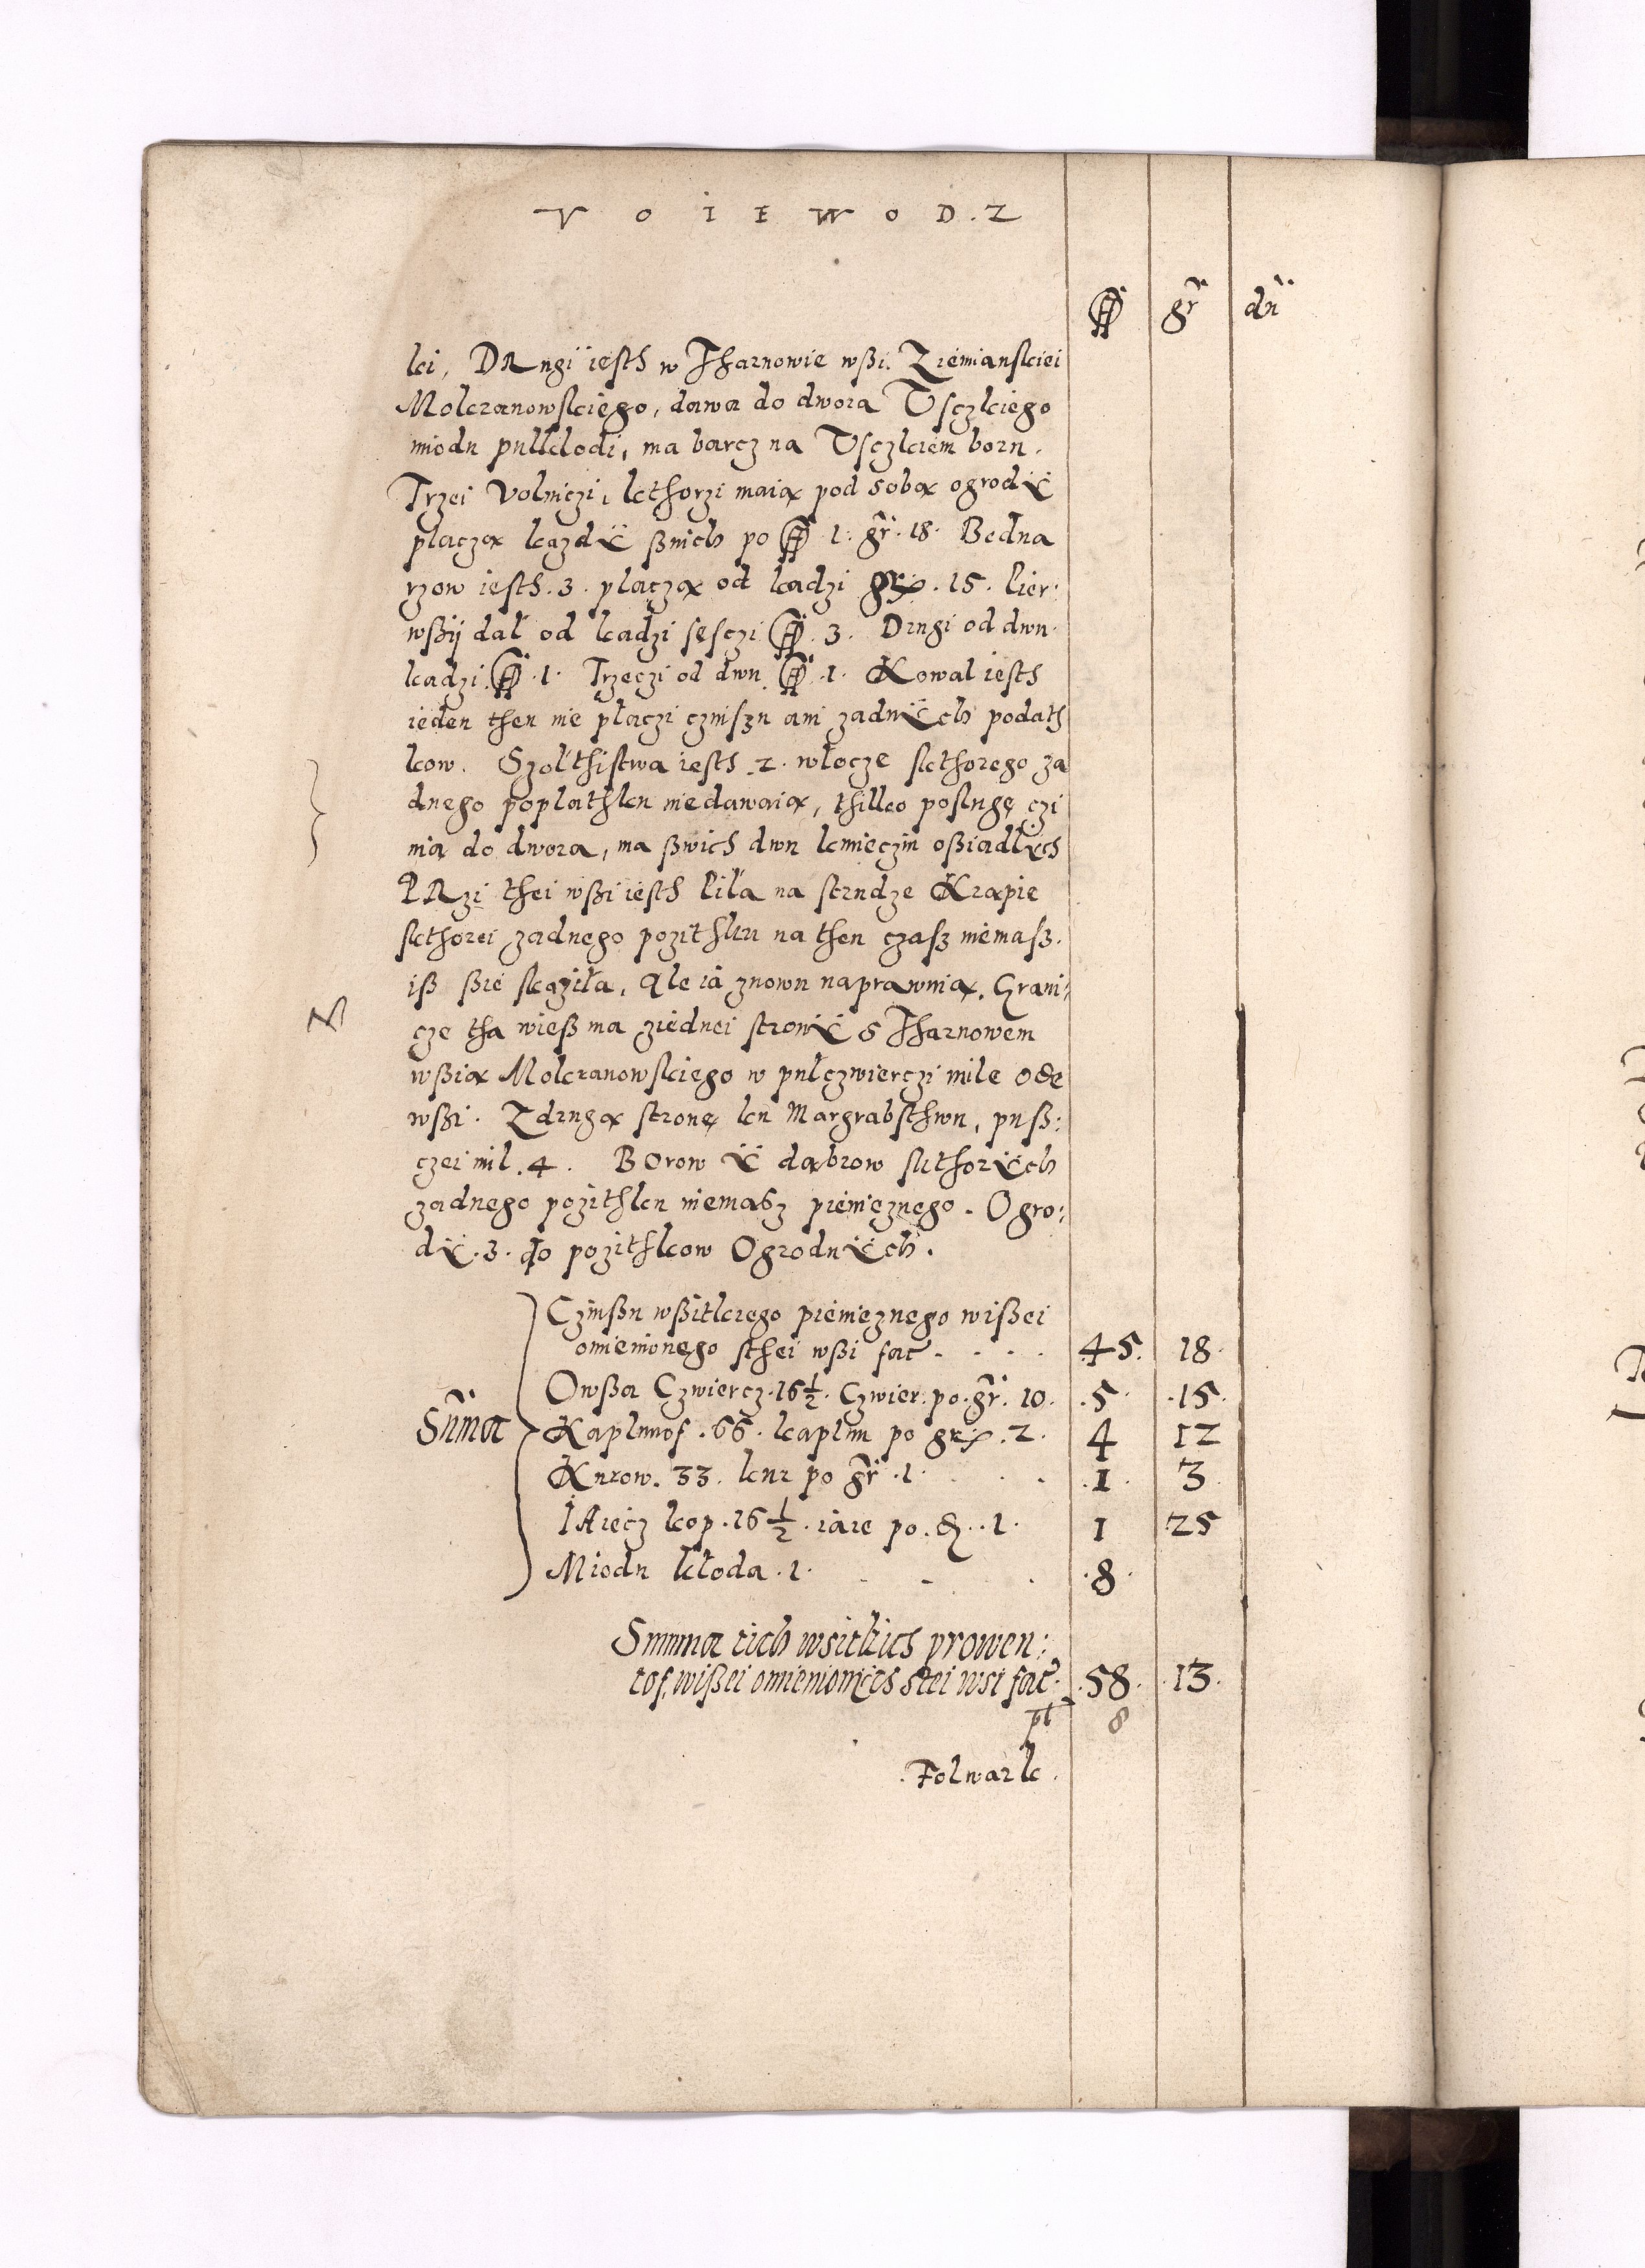 V O I E W O D . Z
fl gr dn
ki, DRugi iesth w Tharnowie wßi Ziemianskiei
Mokranowskiego, dawa do dwora Usczkiego
miodu pullkłodi, ma barcz na Usczkiem boru.
Trzei Volniczi, kthorzi maią pod sobą ogrodÿ
płaczą kazdÿ ßnich po fl 1. gr. 18. Bedna
rzow iesth. 3. płaczą od kadzi gr. 15. Pier:
wßij dał od kadzi sesczi fl. 3. Drugi od dwu
kadzi fl. 1. Trzeczi od dwu fl. 1. Kowal iesth
ieden then nie płaczi czinszu ani zadnÿch podath
kow. Szolthistwa iesth 2. włocze kthorego za
dnego poplathku niedawaią, thilko posluge czi
nią do dwora, ma ßwich dwu kmieczin oßiadlÿch
PRzi thei wßi iesth Piła na strudze Krapie
kthorei zadnego pozithku na then czasz niemasz.
iß ßie skaziła, Ale ią znowu naprawuią. Grani:
cze tha wieß ma ziednei stronÿ s Tharnowem
wßią Mokranowskiego w pulczwierczi mile ode
wßi. Zdrugą stronę ku Margrabsthwu, puß:
czei mil. 4. Borow ÿ dąbrow kthorÿch
zadnego pozithku niemasz pienięznego. Ogro:
dÿ. 3. do pozithkow Ogrodnÿch.
Czinßu wßitkiego pienieznego wißei
omienionego sthei wßi fac̃ . . . . 45. 18.
Owßa Czwiercz. 16 1/2. Czwier: po. gr. 10. 5. 15.
Sum̃a Kaplunos. 66. kaplun po gr. 2. 4 12
Kurow. 33. kur po gr. 1. . . 1. 3
IAiecz kop. 16 1/2. iaie po. 1. 1 25
Miodu kłoda. 1. . . . 8.
Summa tich wsitkich prowen:
tos, wißei omienionÿch stei wsi fac̃. 58. 13.
8
Folwark.